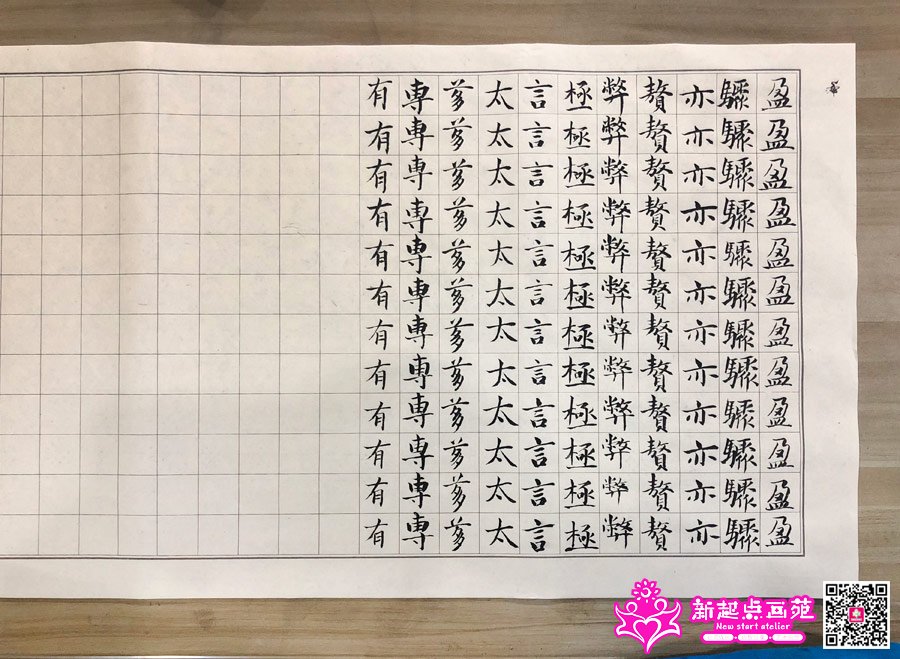 盈盈盈盈盈盈盈盈盈盈盈盈
驟驟驟驟驟驟驟驟驟驟驟驟
亦亦亦亦亦亦亦亦亦亦亦亦
贅贅贅贅贅贅贅贅贅贅贅贅
弊弊弊弊弊弊弊弊弊弊弊弊
極極極極極極極極極極極極
言言言言言言言言言言言言
太太太太太太太太太太太太
専専専専専専専専専専専専
有有有有有有有有有有有有
新起点画苑
New start atelier